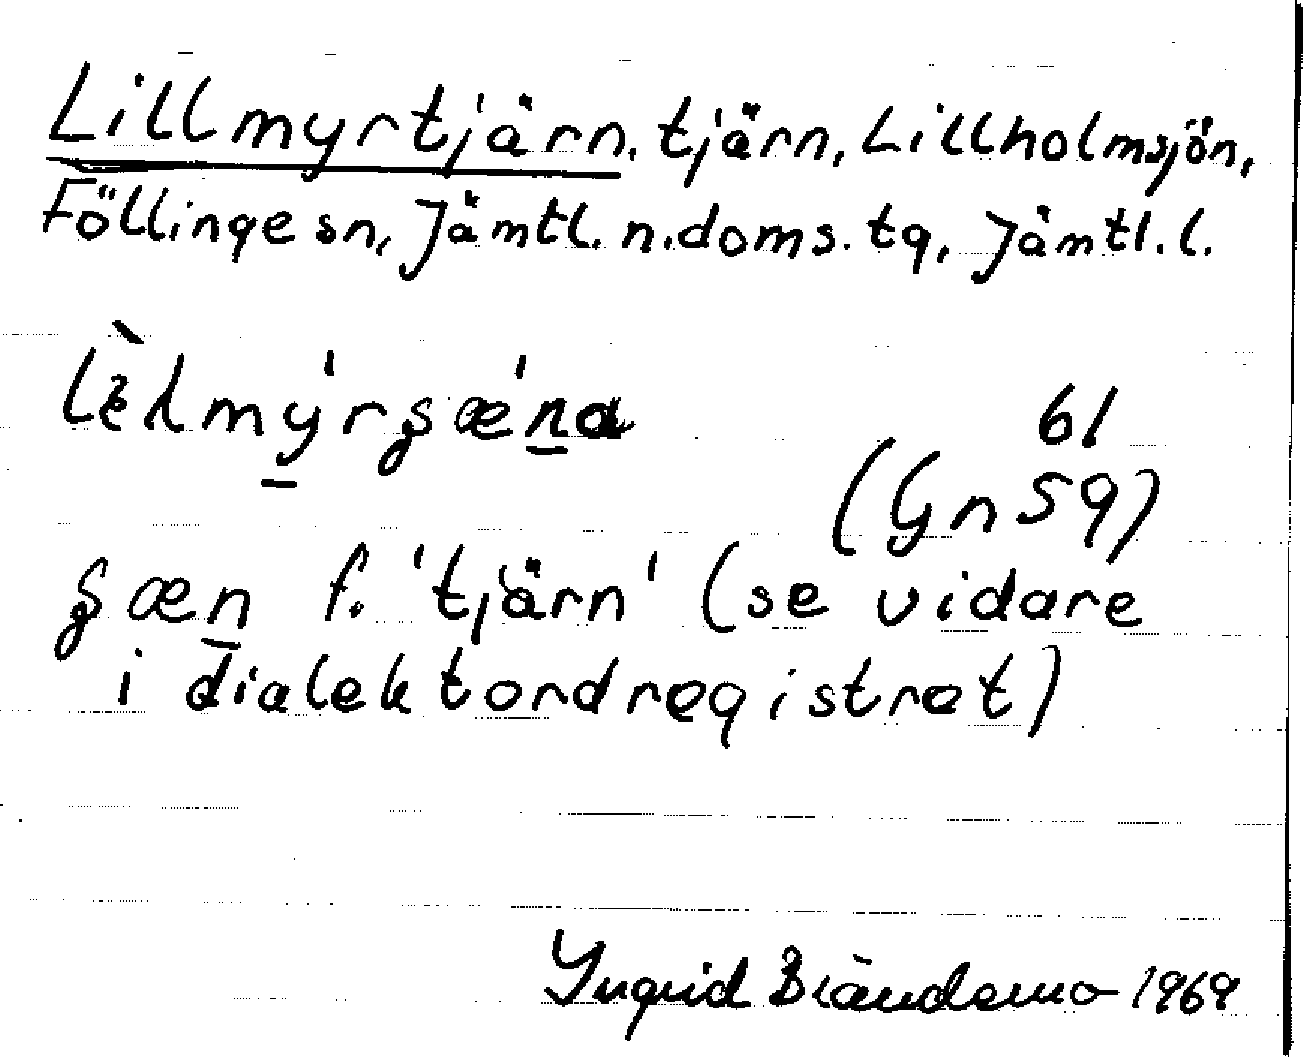 Lillmyrtjärn, tjärn, Lillholmsjön,
Föllinge sn, Jämtl. n. doms. tg, Jämtl. l.
61
(Gn 59)
f. 'tjärn' (se vidare
i dialektordregistret)
Ingrid Brändemo 1969